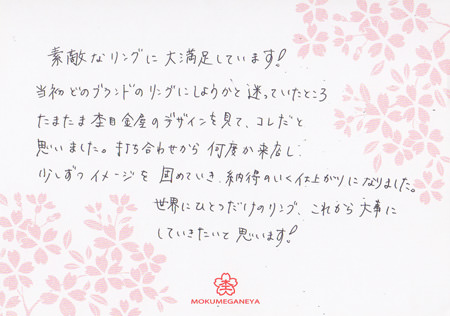 素敵なリングに大満足しています!
当初どのブランドのリングにしようかと迷っていたところ
たまたま杢目金屋のデザインを見て、コレだと
思いました。打ち合わせから何度か来店し、
少しずつイメージを固めていき、納得のいく仕上がりになりました。
世界にひとつだけのリング、これから大事に
していきたいと思います!
杢
MOKUMEGANEYA